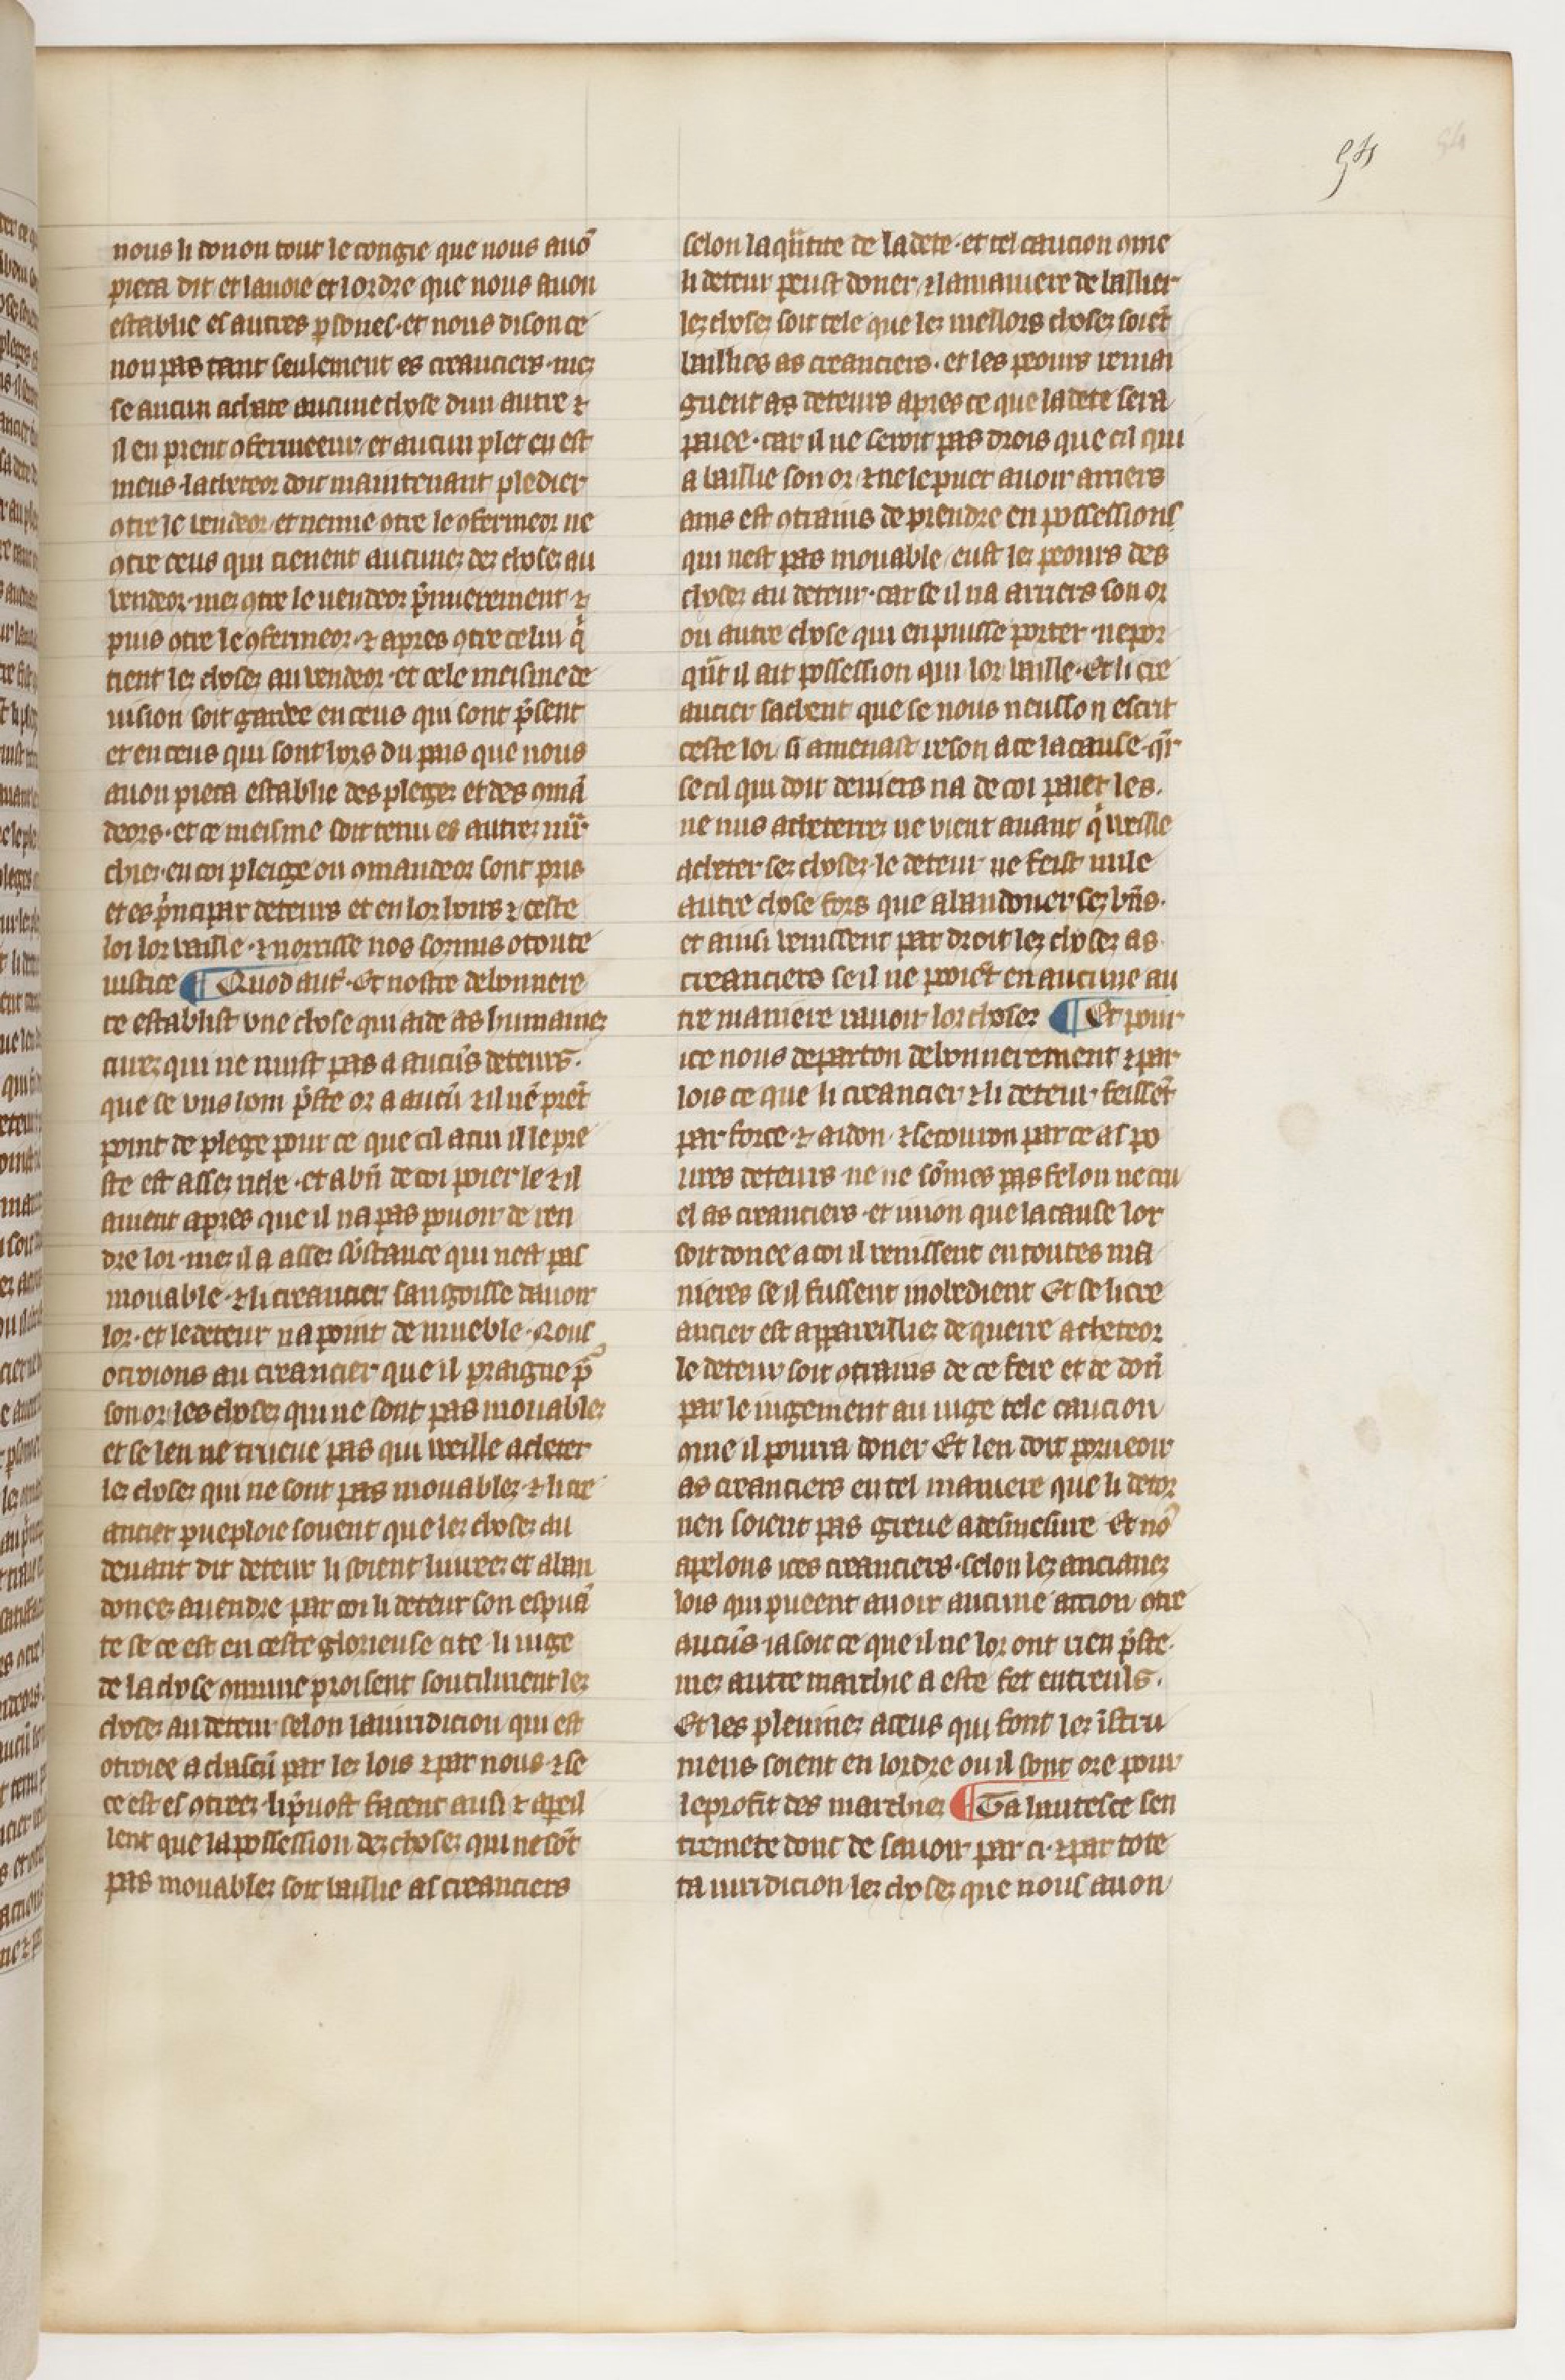 54
54
nous li donon tout le congie que nous auō
pieca dit et lauoie et lordre que nous auon
establie es autres ꝑsones · et nous dison ce
non pas tant seulement es creanciers · mez
se aucun achate aucune chose dun autre ⁊
il en prent ꝯfermeeur / et aucun plet en est
meus · lacheteor doit maintenant pledier
ꝯtre le uendeor / et nenue ꝯtre le ꝯfermeor ne
ꝯtre ceus qui tienent aucunez dez chosez au
vendeor · mez ꝯtre le uendeor p̄mierement ⁊
puis ꝯtre le ꝯfermeor · ⁊ apres ꝯtre celui q̄
tient lez chosez au vendeor · et cele meisme de
uision soit gardee en ceus qui sont p̄sent
et en ceus qui sont hors du pais que nous
auon pieca establie des plegez et des ꝯmā
deors · et ce meisme soit tenu es autrez mar
chiez · en coi pleige ou ꝯmandeor sont pris
et es p̄ncipax deteurs et en lor hoirs ⁊ ceste
loi lor vaille · ⁊ norrisse nos sozmis o toute
iustice ¶ Quod aut̄ · Et nostre debonnere
te establist vne chose qui aide as humainez
curez qui ne nuist pas a aucūs deteurs .
que se vns hom p̄ste or a aucū ⁊ il nē pret
point de plege pour ce que cil a cui il le pre
ste est assez riche · et a bn̄ de coi poier le ⁊ il
auient apres que il na pas pouoir de ren
dre lor · mez il a assez sb̄stance qui nest pas
mouable · ⁊ li creancier sangoisse dauoir
lor · et le deteur na point de mueble · Nous
otroions au creancier que il praigne p̄
son or les chosez qui ne sont pas mouablez
et se len ne trueue pas qui veille acheter
lez chosez qui ne sont pas mouablez · ⁊ li cre
ancier pueploie souent que lez chosez du
deuant dit deteur li soient liurez et aban
donez a uendre par coi li deteur son espuā
te se ce est en ceste glorieuse cite · li iuge
de la chose ꝯmune proisent soutilment lez
chosez au deteur selon la iuridicion qui est
otroiee a chascū par lez lois ⁊ par nous · ⁊ se
ce est es ꝯtreez · li p̄uost facent ausi ⁊ apeil
lent que la possession dez chosez qui ne sōt
pas mouablez soit baillie as creanciers
selon la qn̄tite de la dete · et tel caucion ꝯme
li deteur peust doner / ⁊ la maniere de baillier
lez chosez soit tele que lez mellors chosez soiet
baillies as creanciers · et les peours remai
gnent as deteurs apres ce que la dete sera
paiee · car il ne seroit pas drois que cil qui
a baillie son or / ⁊ ne le puet auoir arriers
ains est ꝯtrains de prendre en possessions
qui nest pas mouable / eust lez peours des
chosez au deteur · car se il na arriers son or
ou autre chose qui en puisse porter · nepor
qūt il ait possession qui lor vaille · Et li cre
ancier sachent que se nous neusson escrit
ceste loi · si amenast reson a ce la cause · q̄r
se cil qui doit deniers na de coi paier les .
ne nus acheterrez ne vient auant q̄ veille
acheter sez chosez · le deteur ne feist nule
autre chose fors que abandoner sez bn̄s .
et ainsi venissent par droit lez chosez as
creanciers se il ne poiēt en aucune au
tre maniere rauoir lor chosez ¶ Et pour
ice nous departon debonnerement ⁊ par
lois ce que li creancier ⁊ li deteur feissēt
par force · ⁊ aidon · ⁊ secouron par ce as po
ures deteurs · ne ne sōmes pas felon ne cru
el as creanciers · et uuon que la cause lor
soit donee a coi il venissent en toutes mā
nieres se il fussent inobedient Et se li cre
ancier est appareilliez de querre acheteor
le deteur soit ꝯtrains de ce fere et de don̄
par le iugement au iuge tele caucion
ꝯme il pourra doner · Et len doit porueoir
as creanciers en tel maniere que li detor
nen soient pas greue a desmesure Et no᷒
apelons ices creanciers · selon lez ancianez
lois qui pueent auoir aucune accion ꝯtre
aucūs · ia soit ce que il ne lor ont rien p̄ste .
mez autre marchie a este fet entreuls .
Et les pleuinez a ceus qui font lez īstru
mens soient en lordre ou il sont ore pour
le profit des marchiez ¶ Ta hautesce sen
tremete dont de sauoir par ci · ⁊ par tote
ta iuridicion lez chosez que nous auon